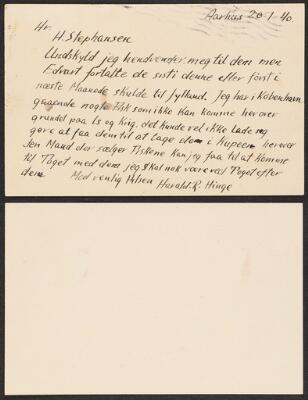 Aarhus 20/1 40.
Hr.
H. Stephansen
Undskyld jeg hendvender meg til dem men
Edvart fortalte de sisti denne eller först i
næste Maanede skulde til Jylland. Jeg har i København
gaaende nogle Fisk som ikke kan komme herover
grundet paa Is og Krig, det kunde vel ikke lade sig
göre at faa dem til at tage dem i Kupeen herover
Den Mand der sælger Fiskene kan jeg faa til at komme
til Toget med dem jeg skal nok være ved Toget efter
dem. Med venlig Hilsen Harald R. Hinge